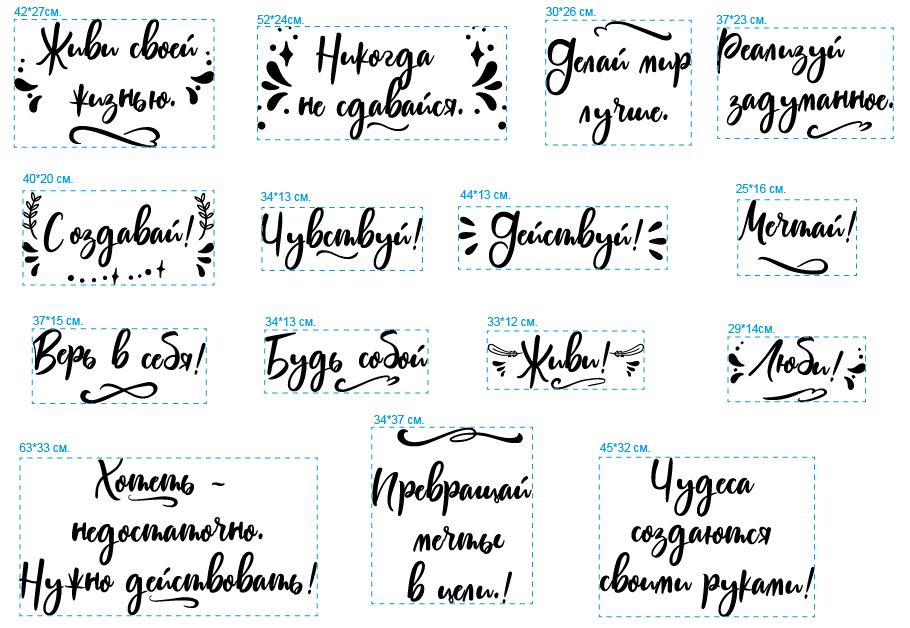 42*27см.
Живи своей
жизнью.
52*24см.
Никогда
не сдавайся.
30*26 см.
Делай мир
лучше.
37*23 см.
Реализуй
задуманное.
40*20 см.
Создавай!
34*13 см.
Чувствуй!
44*13 см.
Действуй!
25*16 см.
Мечтай!
37*15 см.
Верь в себя!
34*13 см.
Будь собой
33*12 см.
Живи!
29*14см.
Люби!
63*33 см.
Хотеть -
недостаточно.
Нужно действовать!
34*37 см.
Превращай
мечты
в цели.!
45*32 см.
Чудеса
создаются
своими руками!